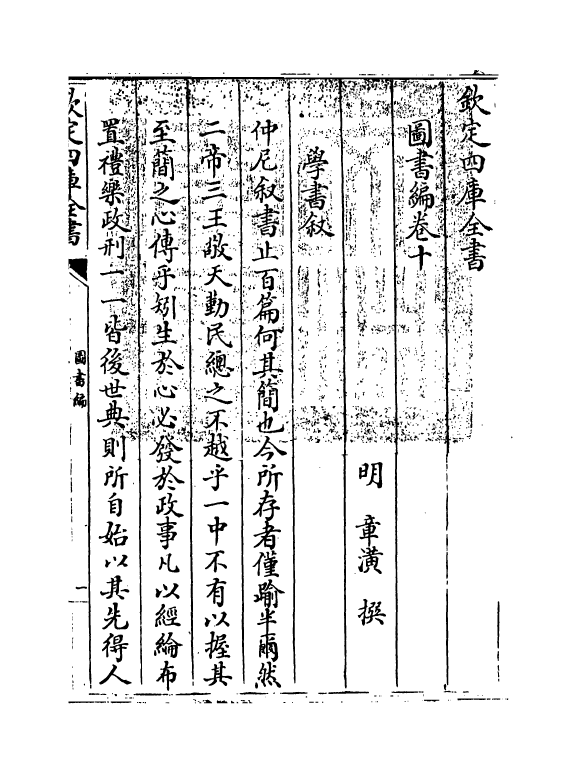 欽定四庫全書
圖書編卷十
明 章潢 撰
學書叙
仲尼叙書止百篇何其簡也今所存者僅踰半爾然
二帝三王敬天勤民總之不越乎一中不有以握其
至蕳之心傳乎矧生於心必發於政事凡以經綸布
置禮樂政刑一一皆後世典則所自始以其先得人
欽定四庫全書
圖書編
一